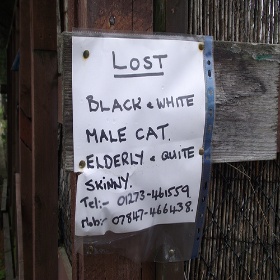 LOST
BLACK & WHITE
MALE CAT.
ELDERLY & QUITE
SKINNY.
Tel:- 01273-461559
Mob:- 07847-466438.